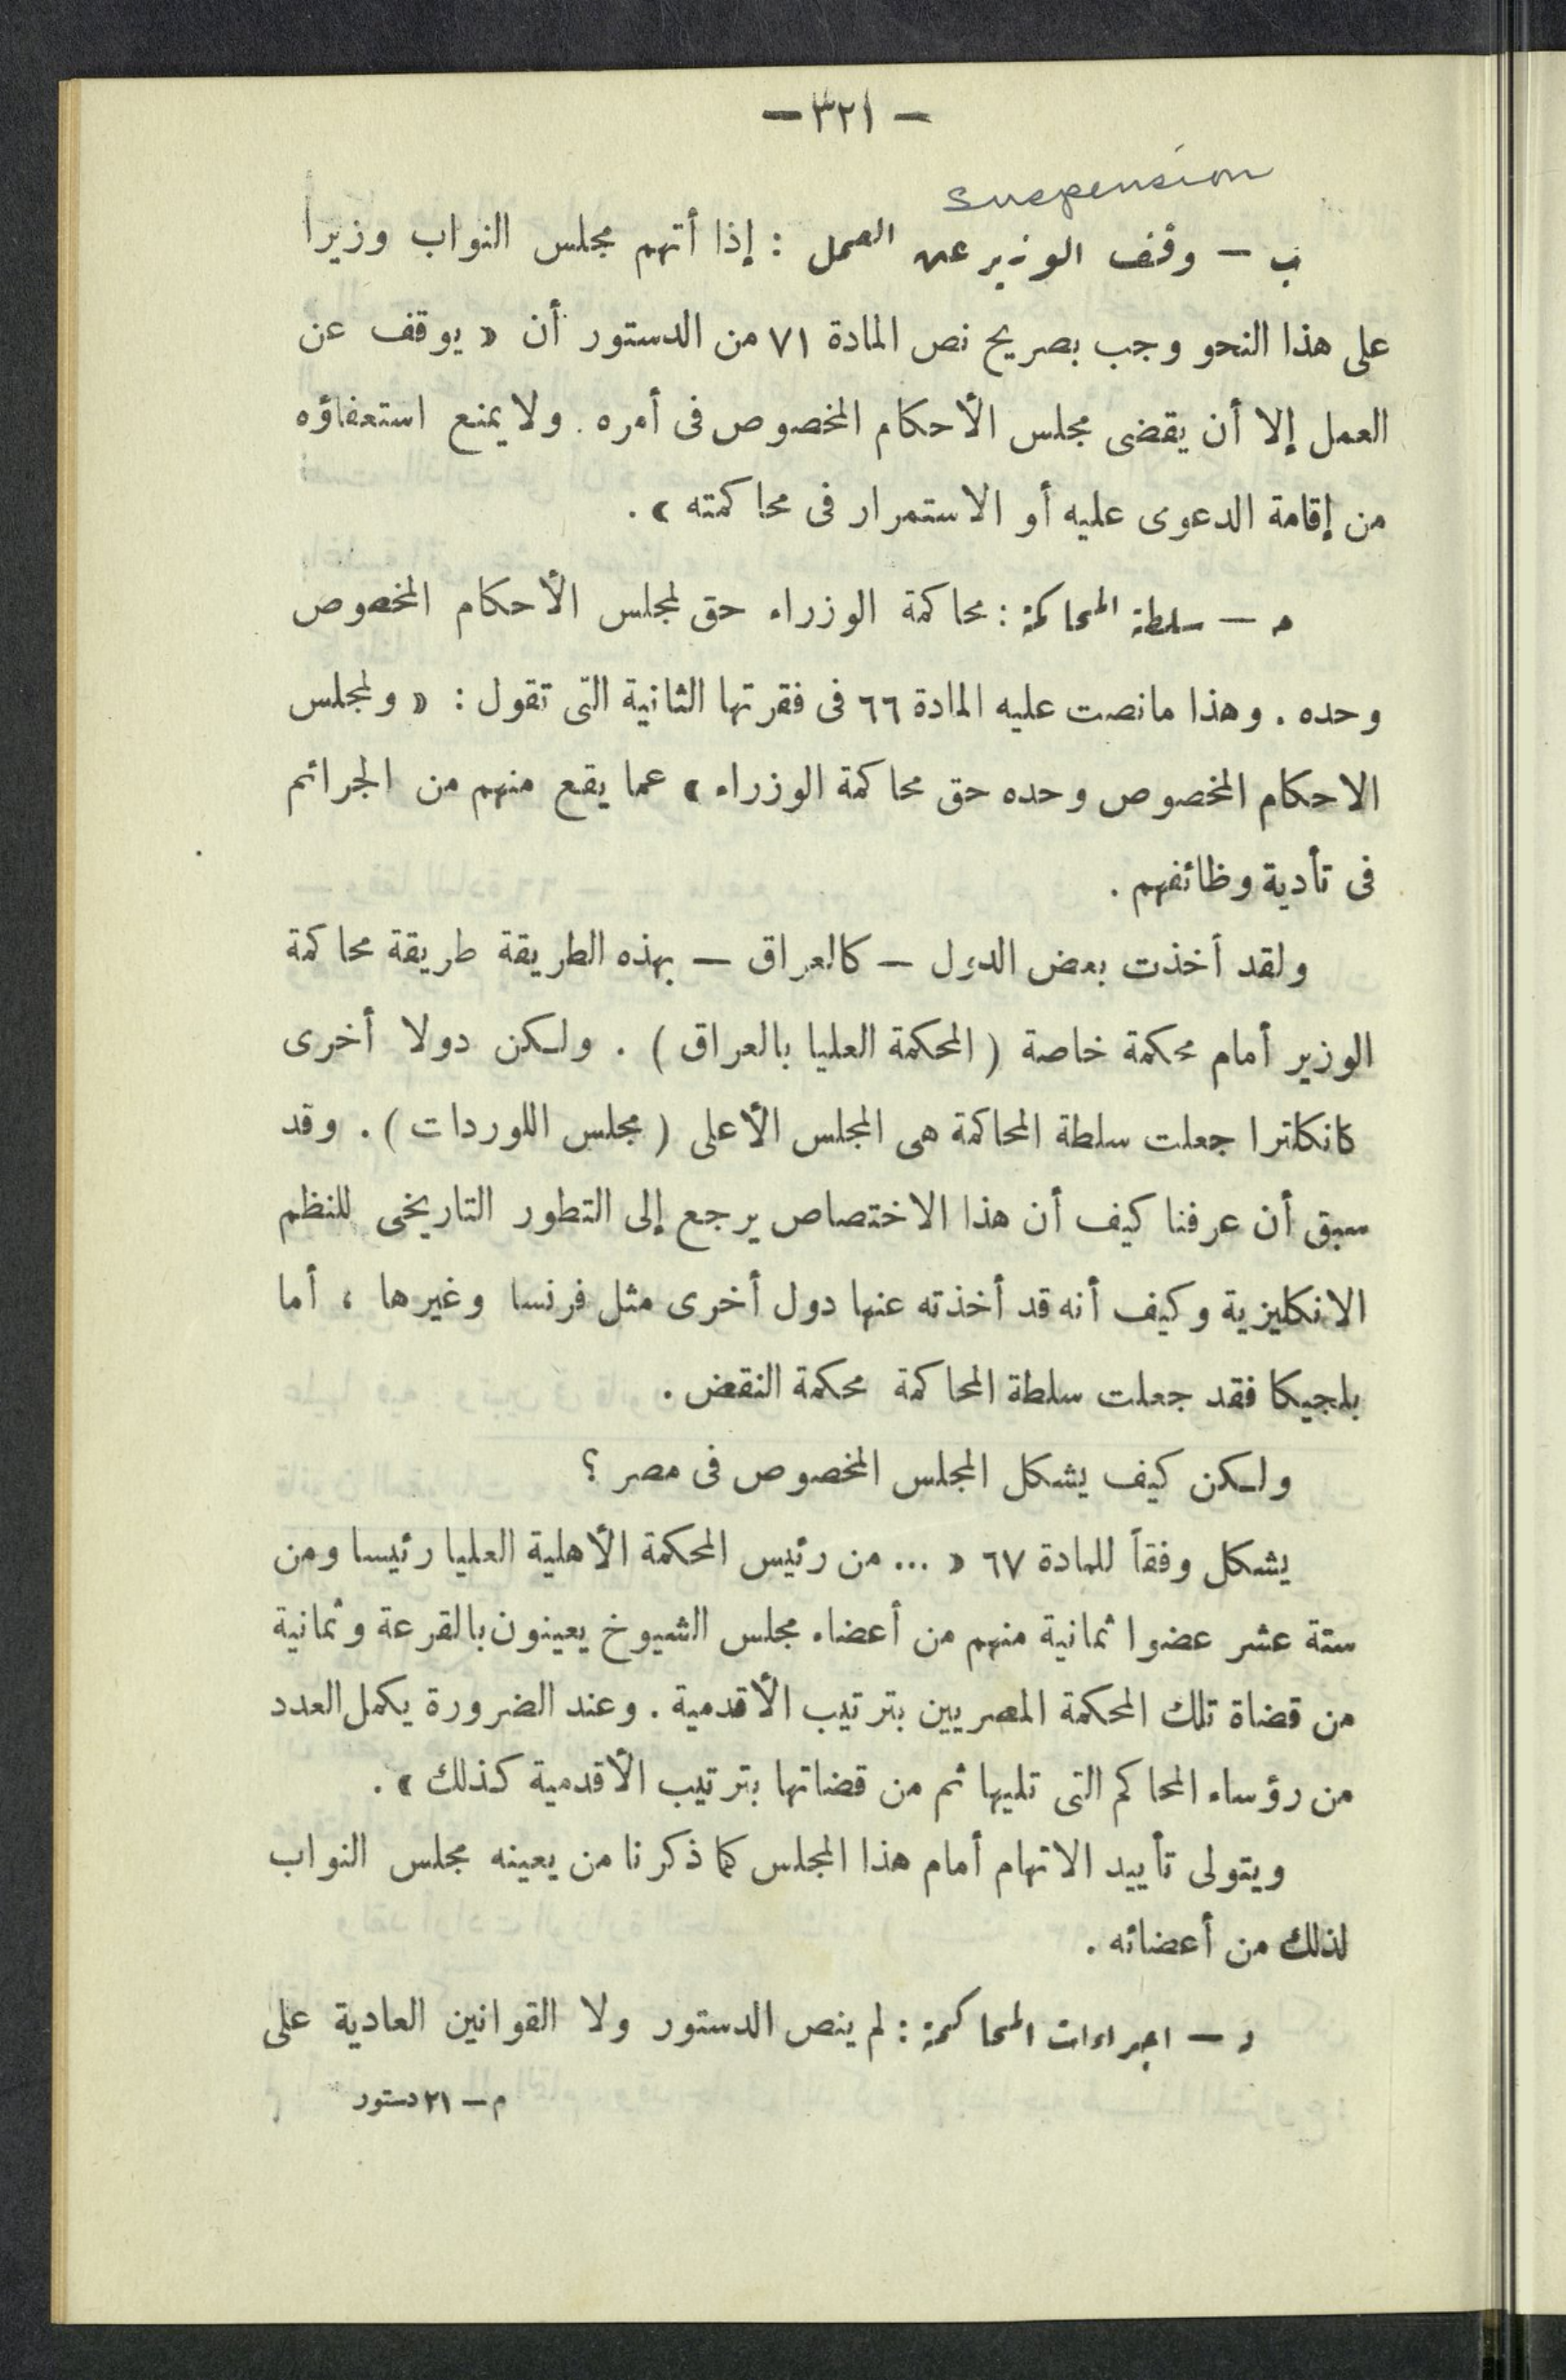 — ٣٢١ —
suspension
ب — وقف الوزير عن العمل : إذا أتهم مجلس النواب وزيرا
على هذا النحو وجب بصريح نص المادة ٧١ من الدستور أن « يوقف عن
العمل إلا أن يقضى مجلس الأحكام المخصوص فى أمره . ولا يمنع استعفاؤه
من إقامة الدعوى عليه أو الاستمرار فى محاكمته » .
ح — سلطة المحاكمة : محاكمة الوزراء حق لمجلس الأحكام المخصوص
وحده . وهذا مانصت عليه المادة ٦٦ فى فقرتها الثانية التى تقول : « ولمجلس
الاحكام المخصوص وحده حق محاكمة الوزراء » عما يقع منهم من الجرائم
فى تأدية وظائفهم .
ولقد أخذت بعض الدول — كالعراق — بهذه الطريقة طريقة محاكمة
الوزير أمام محكمة خاصة ( المحكمة العليا بالعراق ) . ولكن دولا أخرى
كانكلترا جعلت سلطة المحاكمة هى المجلس الأعلى ( مجلس اللوردات ) . وقد
سبق أن عرفنا كيف أن هذا الاختصاص يرجع إلى التطور التاريخى للنظم
الانكليزية وكيف أنه قد أخذته عنها دول أخرى مثل فرنسا وغيرها ، أما
بلجيكا فقد جعلت سلطة المحاكمة محكمة النقض .
ولكن كيف يشكل المجلس المخصوص فى مصر ؟
يشكل وفقاً للمادة ٦٧ « ... من رئيس المحكمة الأهلية العليا رئيسا ومن
ستة عشر عضوا ثمانية منهم من أعضاء مجلس الشيوخ يعينون بالقرعة وثمانية
من قضاة تلك المحكمة المصريين بترتيب الأقدمية . وعند الضرورة يكمل العدد
من رؤساء المحاكم التى تليها ثم من قضاتها بترتيب الأقدمية كذلك » .
ويتولى تأييد الاتهام أمام هذا المجلس كما ذكرنا من يعينه مجلس النواب
لذلك من أعضائه .
د — اجراءات المحاكمة : لم ينص الدستور ولا القوانين العادية على
م — ٢١ دستور